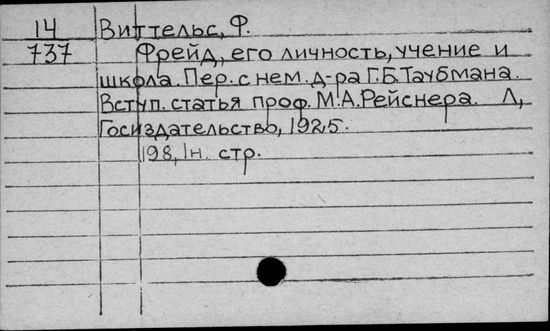 14 Виттельс, Ф.
737 Фрейд, его личность, учение и
школа. Пер. с нем. д-ра Г.Б. Таубмана.
Вступ. статья проф. М.А. Рейснера. Л,
Госиздательство, 1925.
198, 1н. стр.